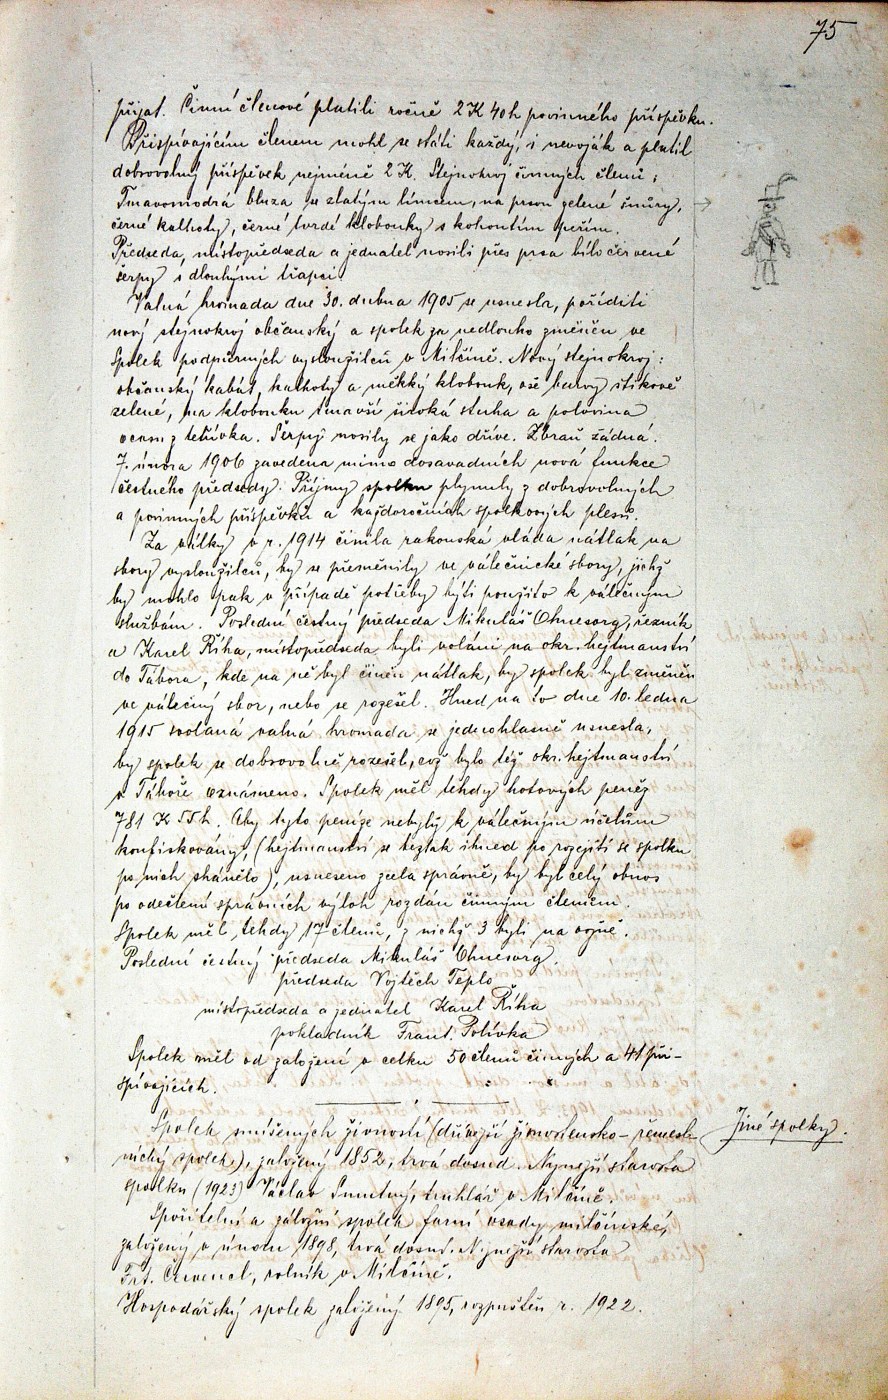 75
přijat. Činní členové platili ročně 2 K 40 h povinného příspěvku.
Přispívajícím členem mohl se státi každý, i nevoják a platil
dobrovolný příspěvek nejméně 2 K. Stejnokroj činných členů:
Tmavomodrá bluza se zlatým límcem, na prsou zelené šňůry,
černé kalhoty, černé tvrdé klobouky s kohoutím peřím.
Předseda, místopředseda a jednatel nosili přes prsa bíločervené
šerpy s dlouhými třapci.
Valná hromada dne 30. dubna 1905 se usnesla, poříditi
nový stejnokroj občanský a spolek za nedlouho změněn ve
Spolek podpůrných vysloužilců v Milčíně. Nový stejnokroj:
občanský kabát, kalhoty a měkký klobouk, vše barvy štikově
zelené, na klobouku tmavší široká stuha a polovina
ocasu z tetřívka. Šerpy nosily se jako dříve. Zbraň žádná.
7. února 1906 zavedena mimo dosavadních nová funkce
čestného předsedy. Příjmy spolku plynuly z dobrovolných
a povinných příspěvků a každoročních spolkových plesů.
Za války v r. 1914 činila rakouská vláda nátlak na
sbory vysloužilců, by se přeměnily ve válečnické sbory, jichž
by mohlo pak v případě potřeby býti použito k válečným
službám. Poslední čestný předseda Mikuláš Ohnesorg, řezník
a Karel Říha, místopředseda byli voláni na okr. hejtmanství
do Tábora, kde na ně byl činěn nátlak, by spolek byl změněn
ve válečný sbor, nebo se rozešel. Hned na to dne 10. ledna
1915 svolaná valná hromada se jednohlasně usnesla,
by spolek se dobrovolně rozešel, což bylo též okr. hejtmanství
v Táboře oznámeno. Spolek měl tehdy hotových peněz
781 K 55 h. Aby tyto peníze nebyly k válečným účelům
konfiskovány, (hejtmanství se beztak ihned po rozejití se spolku
po nich shánělo), usneseno zcela správně, by byl celý obnos
po odečtení správních výloh rozdán činným členům.
Spolek měl tehdy 17 členů, z nichž 3 byli na vojně.
Poslední čestný předseda Mikuláš Ohnesorg.
předseda Vojtěch Teplo
místopředseda a jednatel Karel Říha
pokladník Frant. Polívka
Spolek měl od založení v celku 50 členů činných a 41 při-
spívajících.
Spolek smíšených živností (dřívější živnostensko-řemesl-
nický spolek), založený 1852, trvá dosud. Nynější starosta
spolku (1923) Václav Smutný, truhlář v Milčíně.
Jiné spolky.
Spořitelní a záložní spolek farní osady milčínské,
založený v únoru 1898, trvá dosud. Nynější starosta
Frt. Červenel, rolník v Milčíně.
Hospodářský spolek založený 1895, rozpuštěn r. 1922.